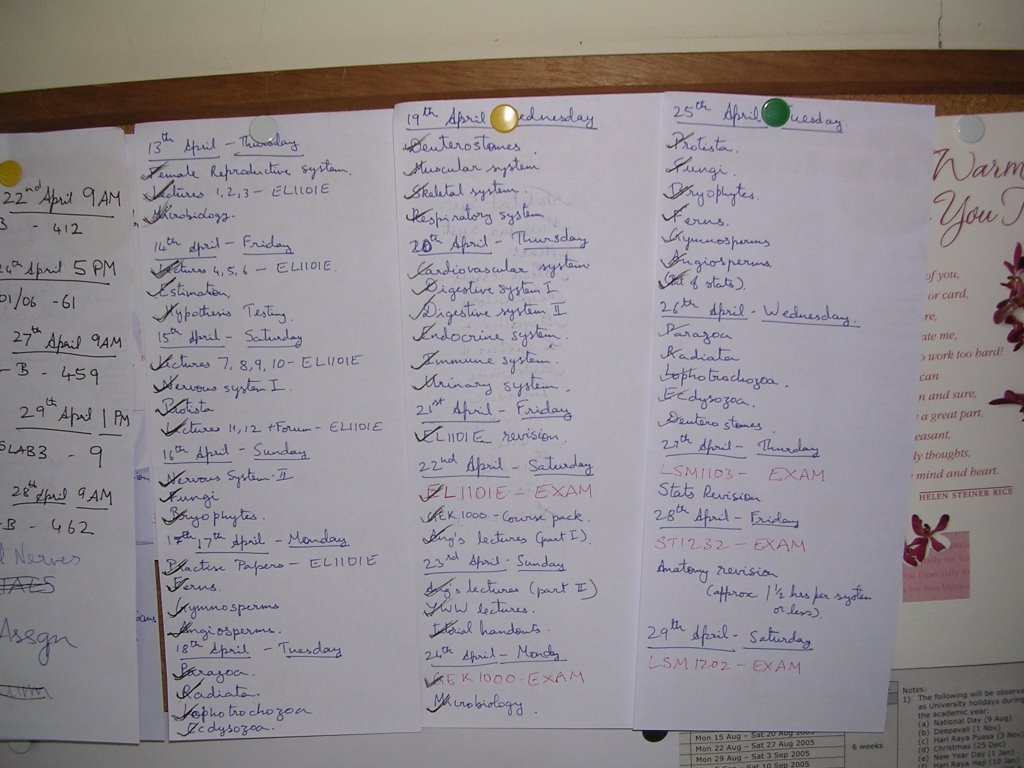 22nd April 9 AM
- 412
24th April 5 PM
01/06 - 61
27th April 9 AM
- B - 459
29th April 1 PM
SLAB3 - 9
28th April 9 AM
- B - 462
Nerves
Assgn
13th April - Thursday
Female Reproductive System.
Lectures 1, 2, 3 - EL1101E
Microbiology.
14th April - Friday
Lectures 4, 5, 6 - EL1101E.
Estimation,
Hypothesis Testing.
15th April - Saturday
Lectures 7, 8, 9, 10 - EL1101E
Nervous system I.
Protista
Lectures 11, 12 + Forum - EL1101E
16th April - Sunday
Nervous System - II
Fungi
Bryophytes.
17th 17th April - Monday
Practise Papers - EL1101E
Ferns.
Gymnosperms
Angiosperms.
18th April - Tuesday
Parazoa.
Radiata.
Lophotrochozoa
Ecdysozoa.
19th April Wednesday
Deuterostomes.
Muscular system
Skeletal system.
Respiratory system
20th April - Thursday
Cardiovascular system.
Digestive System I
Digestive system II
Endocrine system.
Immune system.
Urinary system.
21st April - Friday
EL1101E revision.
22nd April - Saturday
EL1101E - EXAM
GEK1000 - Course pack.
Ang's lectures (part I).
23rd April - Sunday
Ang's lectures (part II)
YWW lectures.
Tutorial handouts.
24th April - Monday
GEK1000 - EXAM
Microbiology.
25th April Tuesday
Protista.
Fungi.
Bryophytes.
Ferns.
Gymnosperms
Angiosperms
(Bit of stats).
26th April - Wednesday.
Parazoa
Radiata
Lophotrochozoa.
Ecdysozoa.
Deuterostomes.
27th April - Thursday
LSM1103 - EXAM
Stats Revision
28th April - Friday
ST1232 - EXAM
Anatomy revision
(approx 1 1/2 hrs per system
or less).
29th April - Saturday
LSM1202 - EXAM
Warm
You T
of you,
or card,
re,
ate me,
work too hard!
can
n and sure,
a great part,
easant,
ly thoughts,
mind and heart.
HELEN STEINER RICE
You Especially to
for You Especially
Mon 15 Aug – Sat 20 Aug 2005
Mon 22 Aug – Sat 27 Aug 2005
Mon 29 Aug – Sat 3 Sep 2005
Sep – Sat 10 Sep 2005
6 weeks
Notes:
1) The following will be observed
as University holidays during
the academic year:
(a) National Day (9 Aug)
(b) Deepavali (1 Nov)
(c) Hari Raya Puasa (3 Nov)
(d) Christmas (25 Dec)
(e) New Year Day (1 Jan)
(f) Hari Raya Haji (10 Jan)